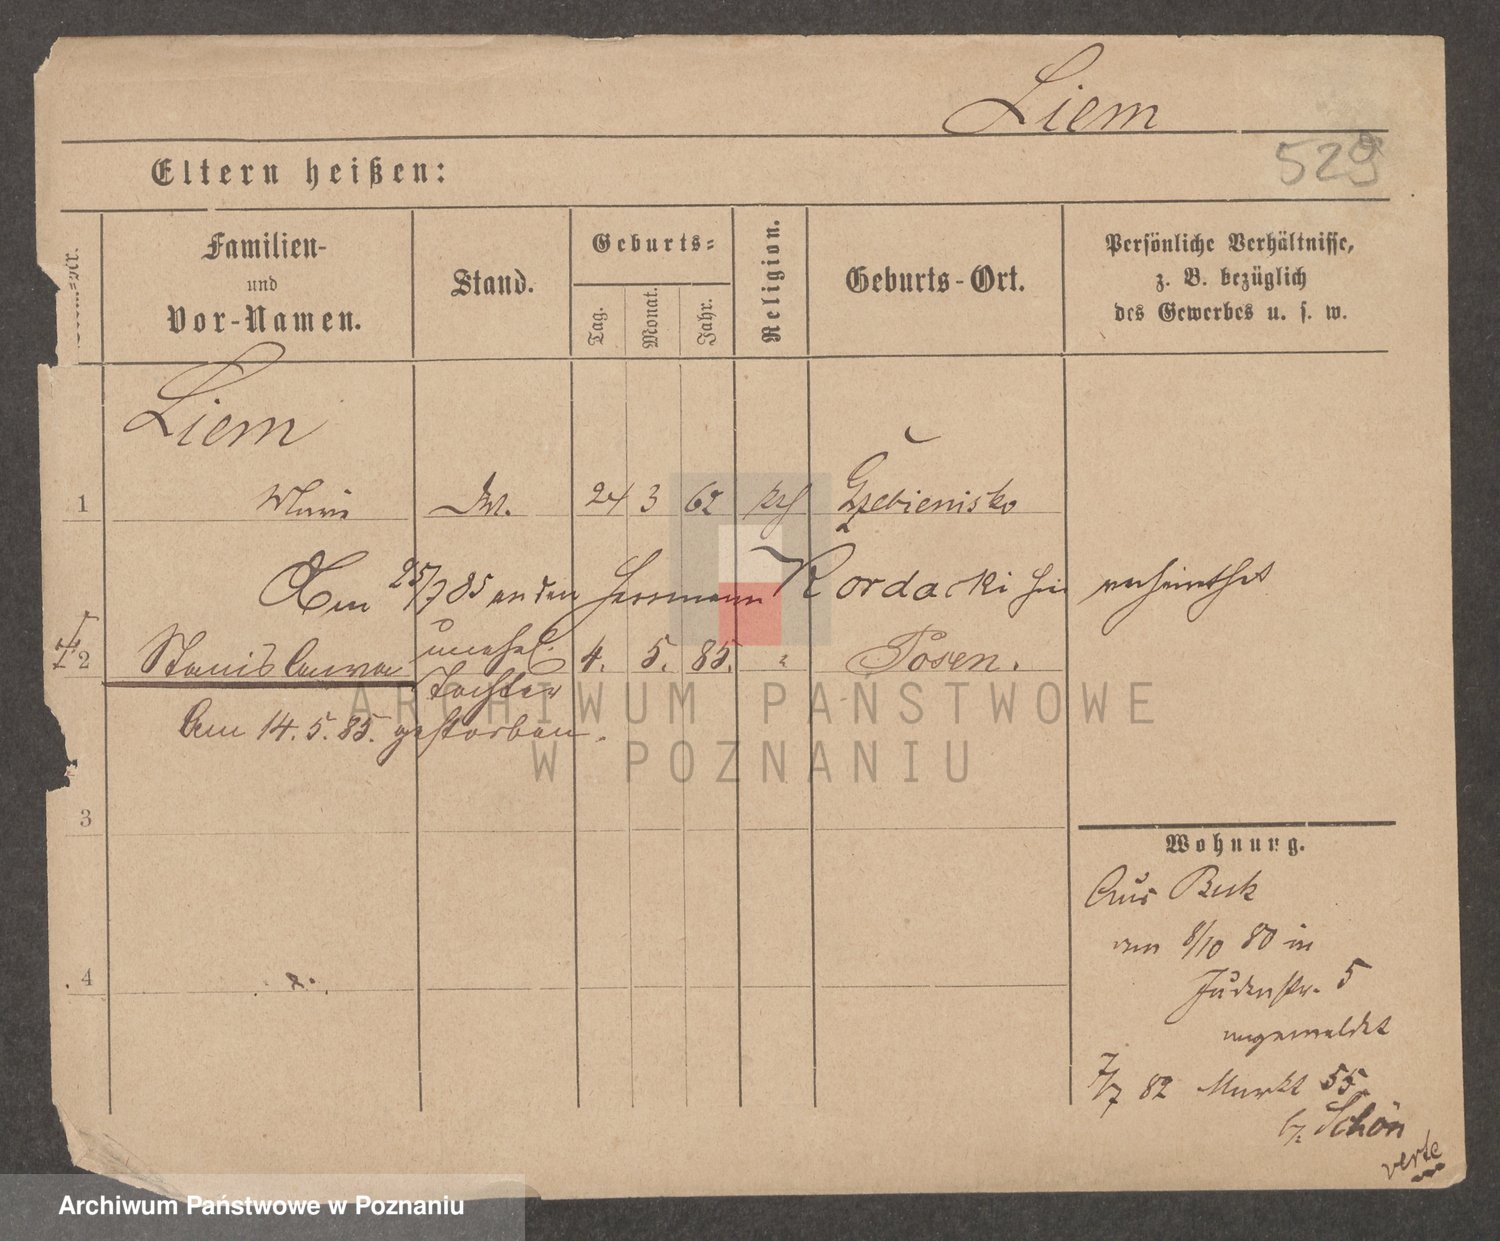 Liem
529
Eltern heißen:
Familien-
und
Vor-Namen.
Stand.
Geburts-
Tag.
Monat.
Jahr.
Religion.
Geburts-Ort.
Persönliche Verhältnisse,
z. B. bezüglich
des Gewerbes u. s. w.
Liem
1 Marie 24 3 62 kth
Am 25/7 85 an den Herrmann Kordacki hier verheirathet
2 Stanislawa unehel. Tochter 4. 5. 85. " Posen.
Am 14. 5. 85. gestorben.
3
4
Wohnung.
Aus Buk
am 8/10 80 in
Judenstr. 5
angemeldet
7/7 82 Markt 55
bz. Schön
verte
ARCHIWUM PAŃSTWOWE
W POZNANIU
Archiwum Państwowe w Poznaniu